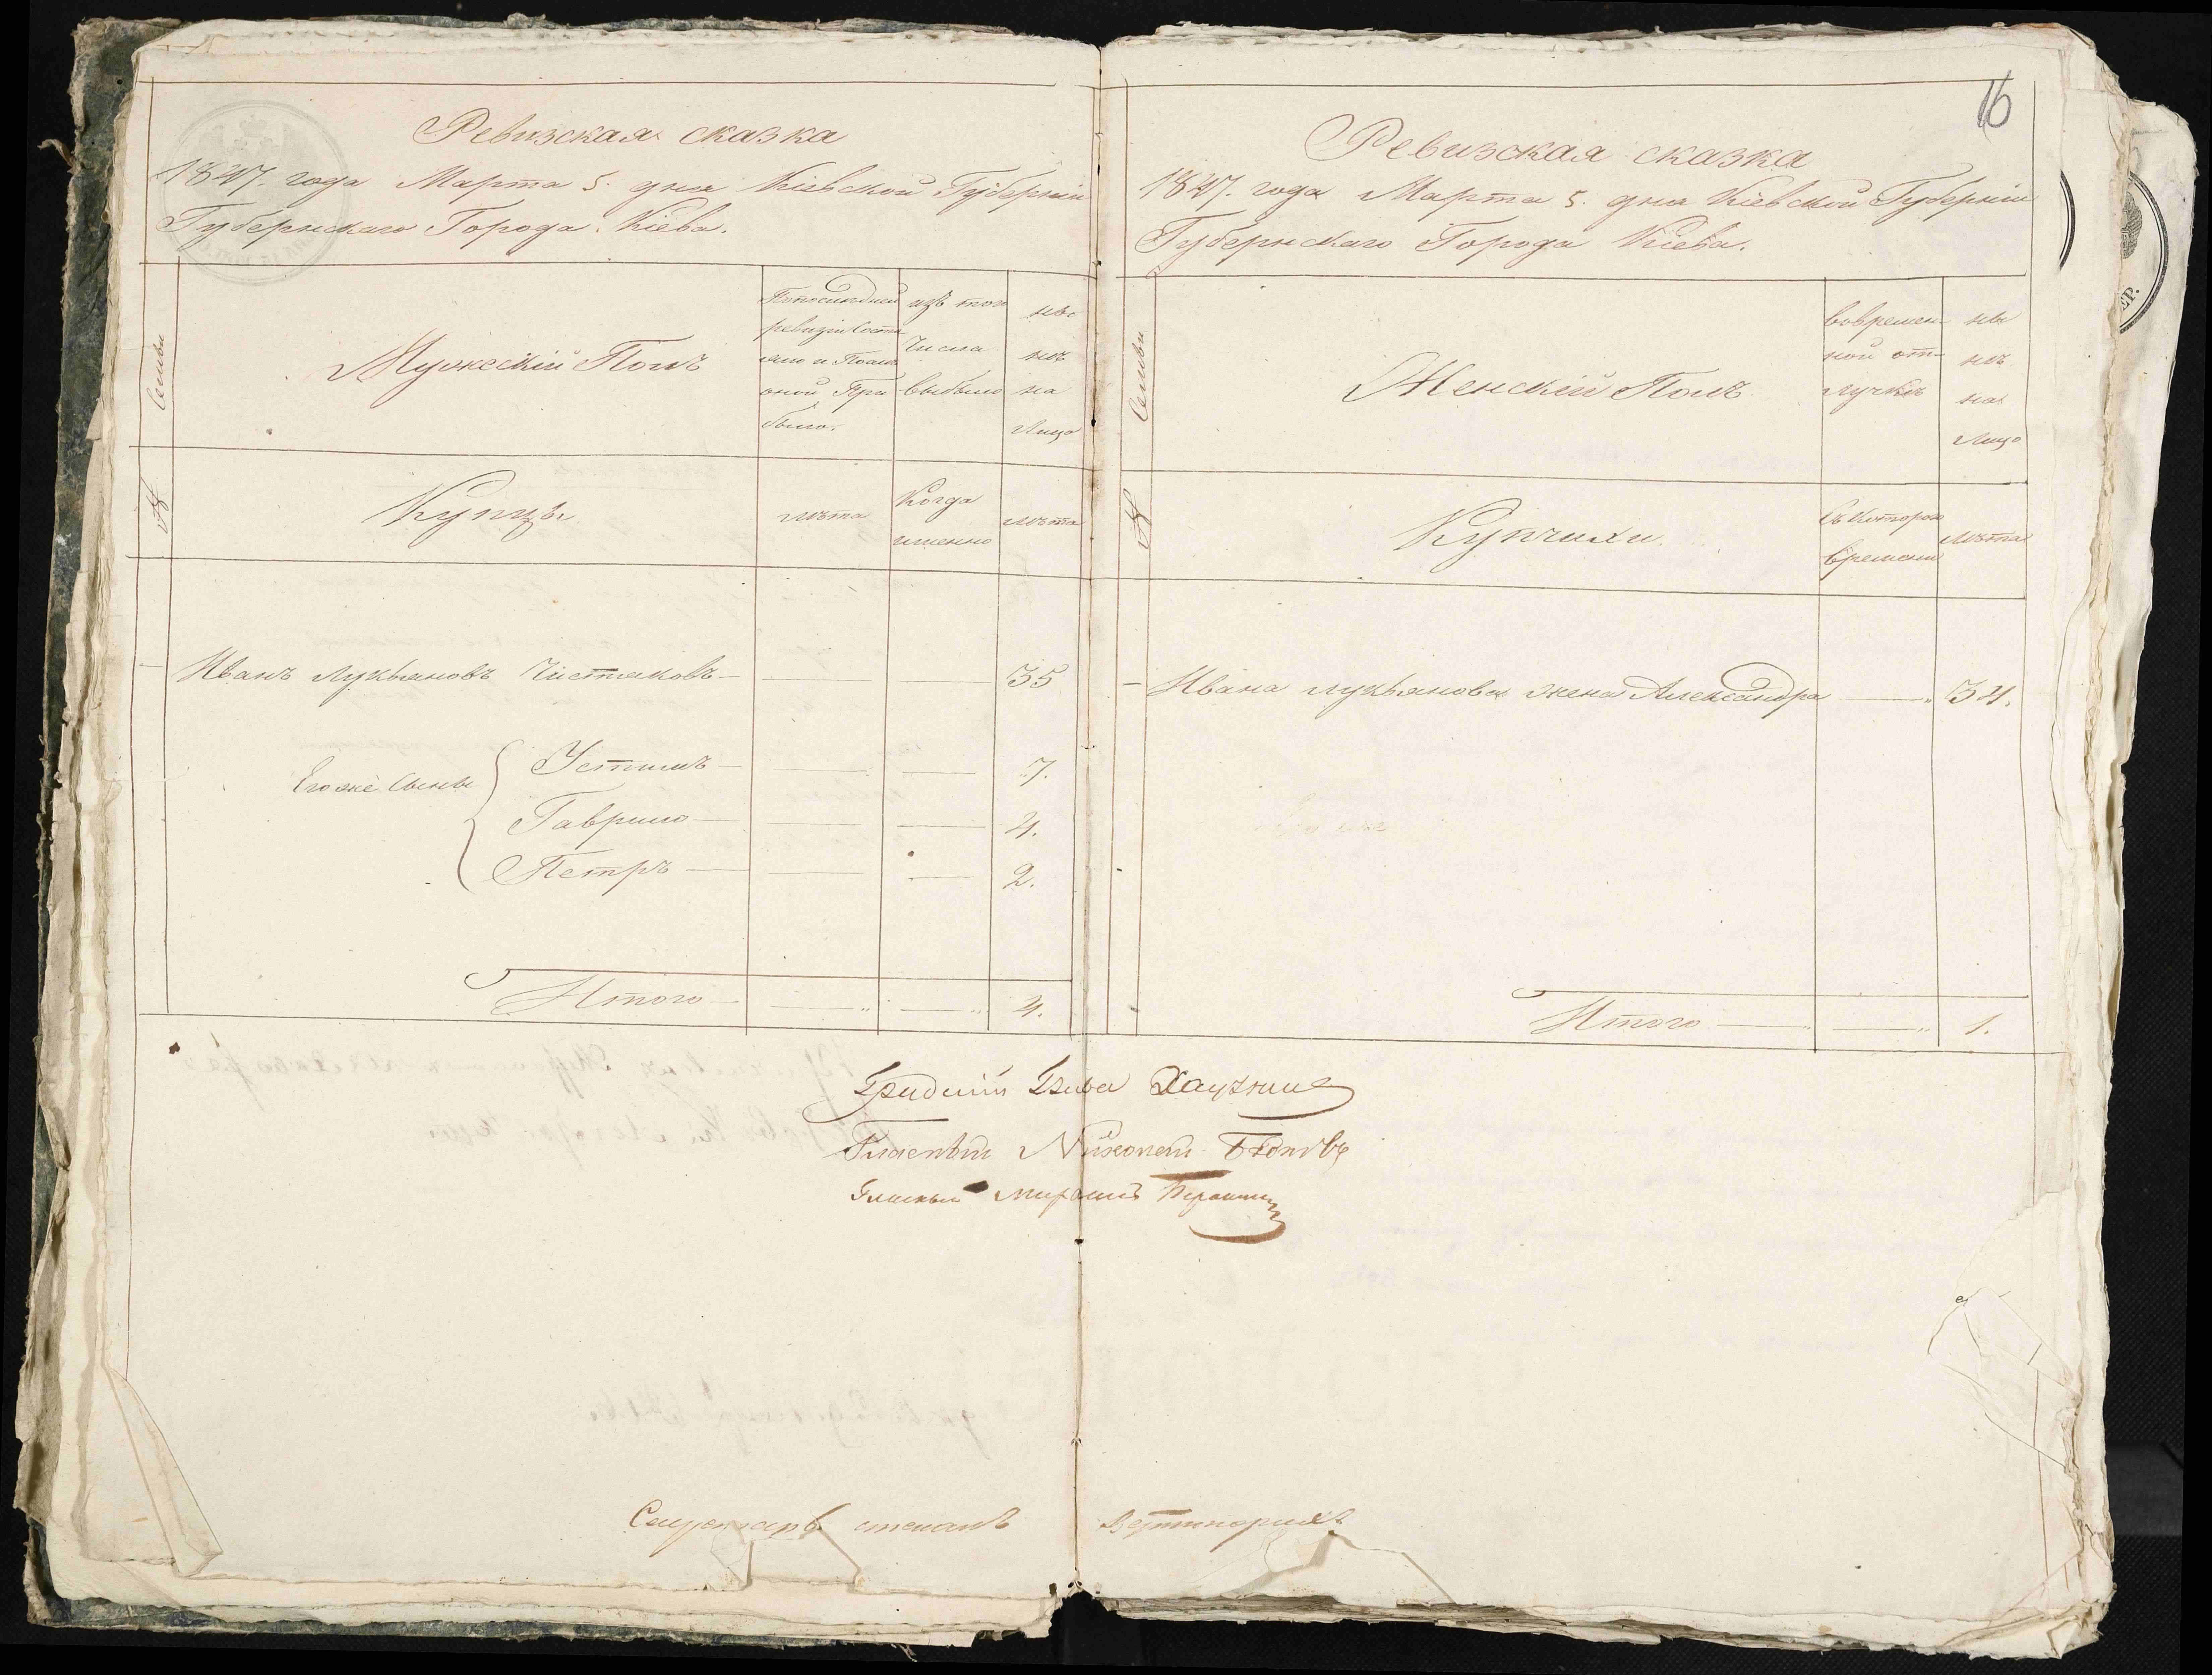 Ревизская сказка
1847. года Марта 5. дня Кіевской Губерніи
Губернскаго Города Кіева.
Семьи
Мужескій Полъ
По последней
ревизіи состо
яло и после
оной при
было.
изъ того
Числа
выбыло
ны
нѣ
на
Лицо
№
Купцы
лѣта
Когда
именно
лѣта
Иванъ Лукьяновъ Чистяковъ 35
Его же сыны
Устимъ 7.
Гаврило 4.
Петръ 2.
Итого 4.
16
Ревизская сказка
1847. года Марта 5. дня Кіевской Губерніи
Губернскаго Города Кіева.
Семьи
Женскій Полъ
вовремен-
ной от-
лучкѣ
ны
нѣ
на
Лицо
№
Купчихи.
Съ котораго
времени
лѣта
Ивана лукьянова жена Александра 34.
Итого 1.
Гласный
Гласный
Секретарь